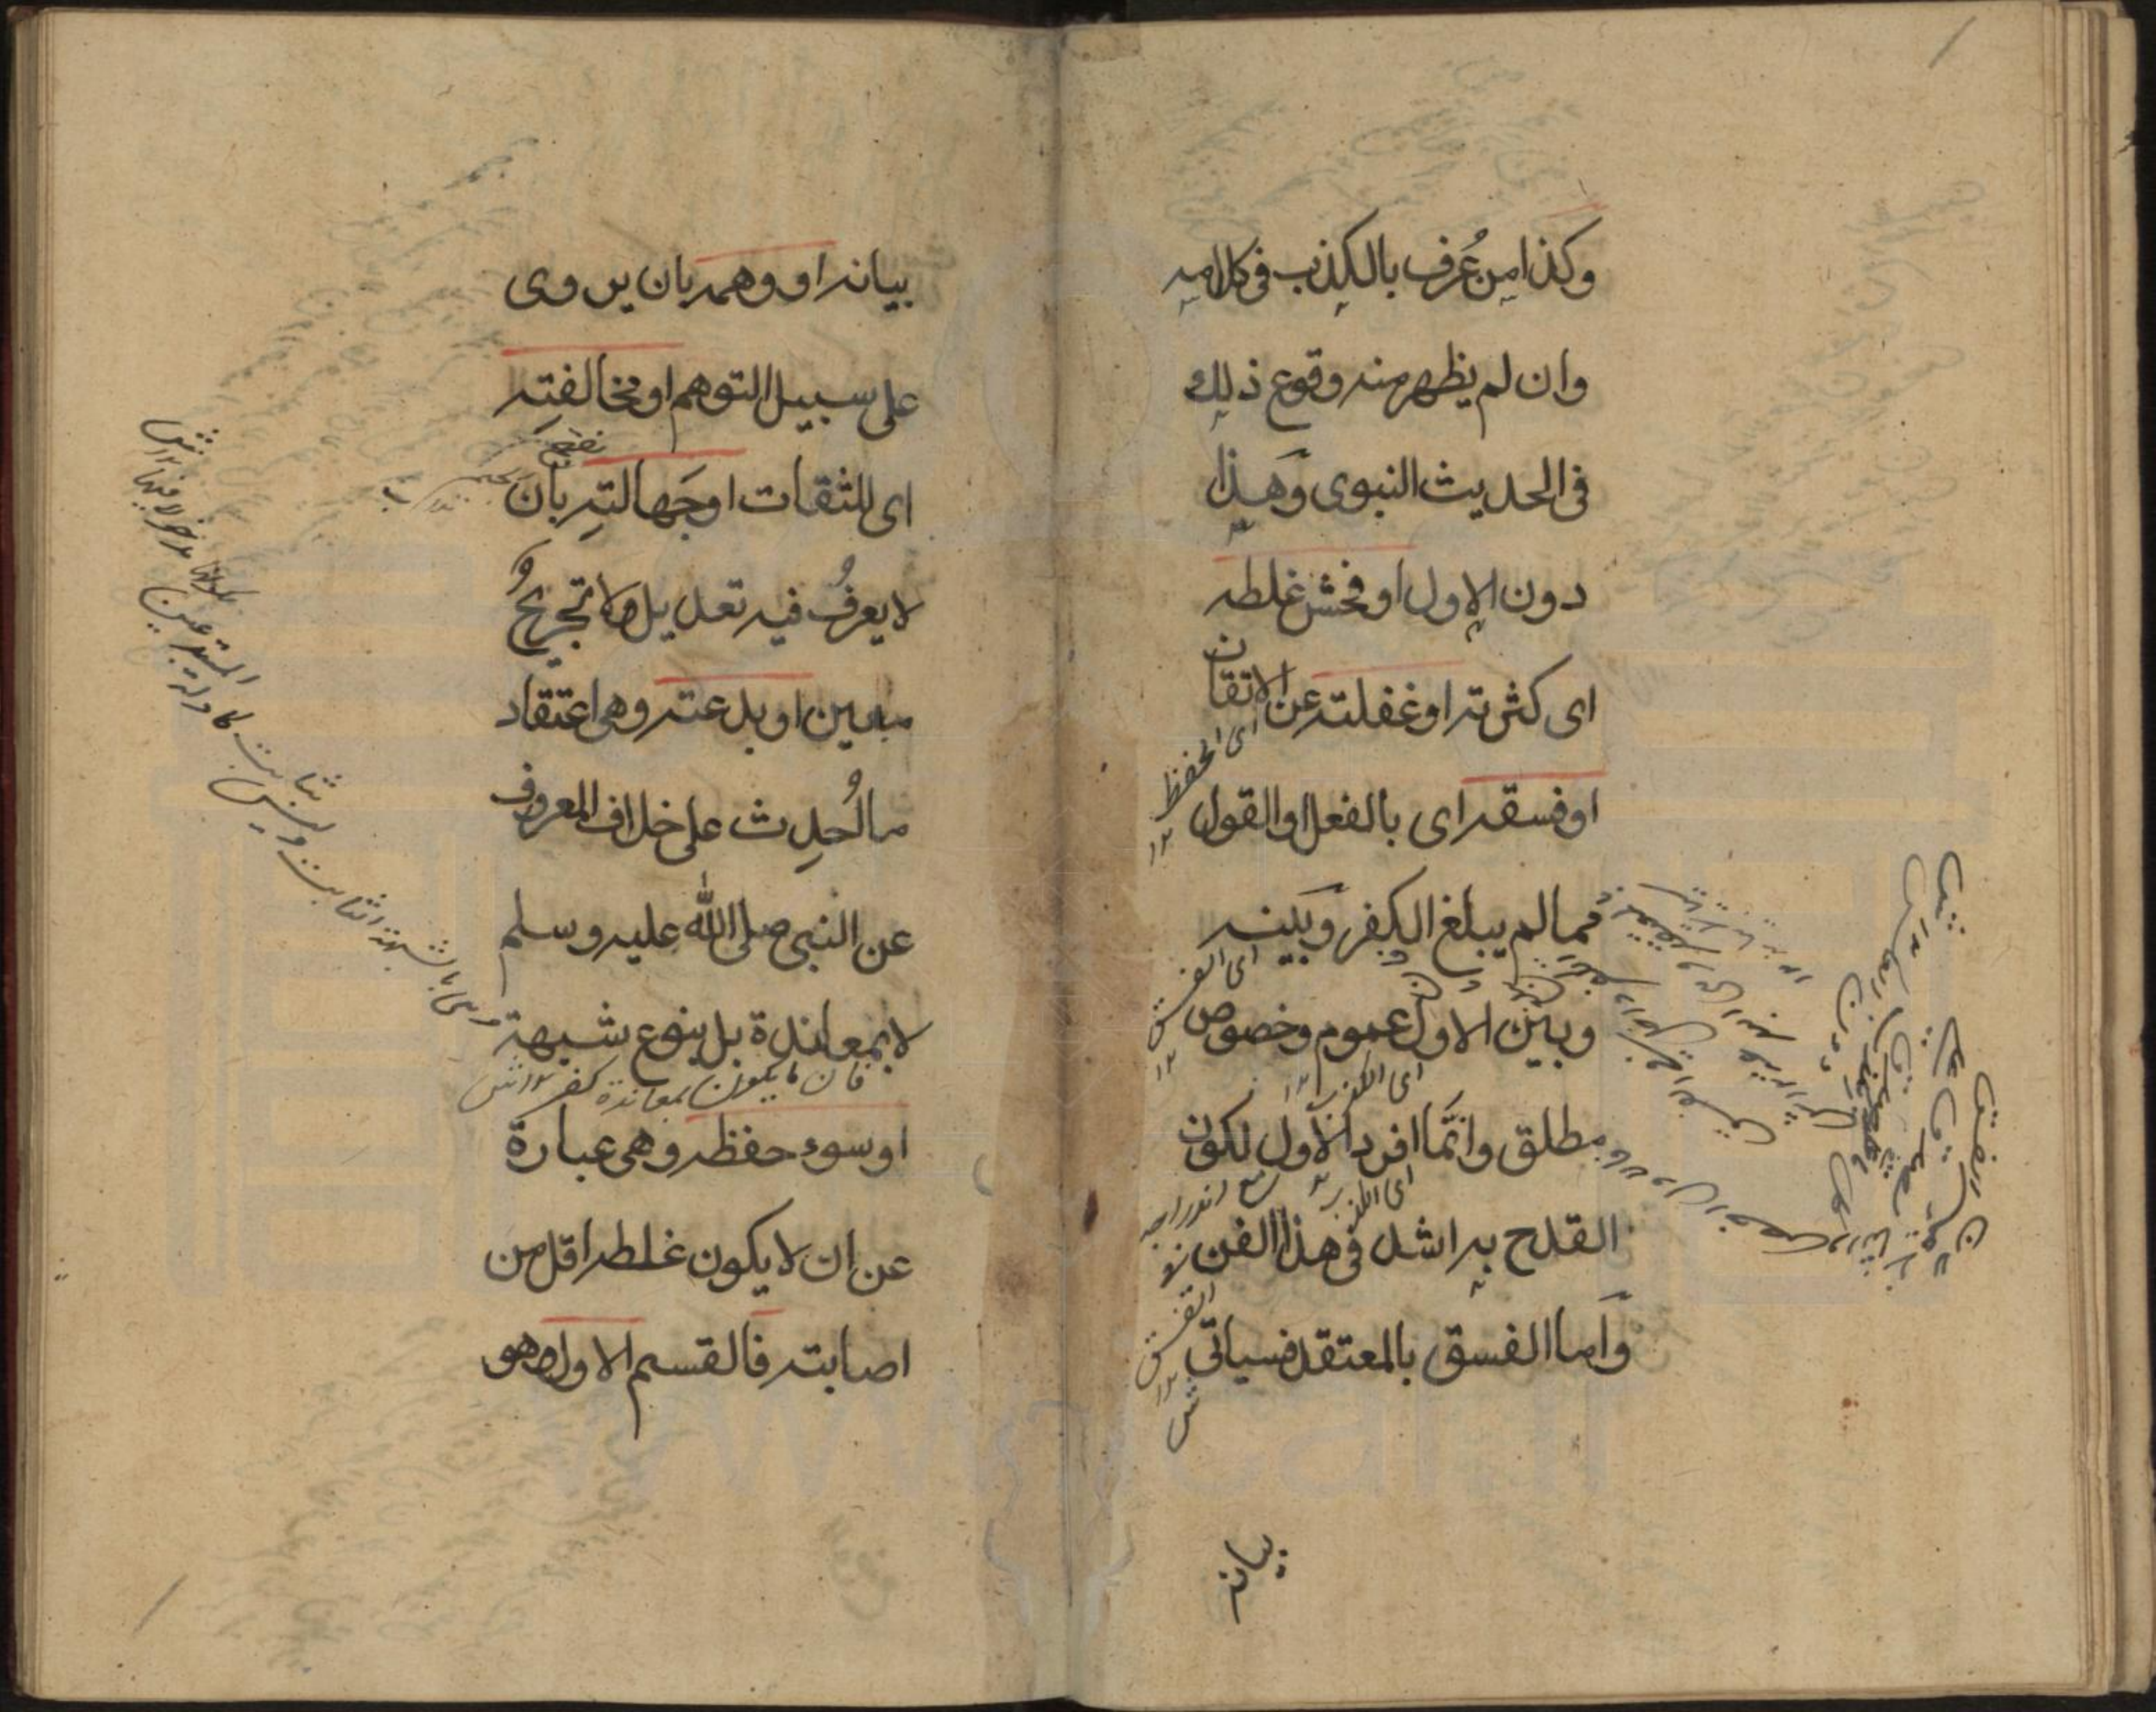 وكذا من عُرف بالكذب في كلامه
وان لم يظهر منه وقوع ذلك
في الحديث النبوى وَهذا
دون الاول او فحش غلطه
اى كثرته او غفلته عن الاتقان
اى الحفظ ١٢
او فسقه اى بالفعل او القول
مما لم يبلغ الكفر وبَينه
اى الفسق ١٢
وبين الاول عموم وخصوص
اى الكذب ١٢
مطلق وانّما افرد الاول لكون
اى الكذب ١٢ مع اندراجه
القدح به اشد في هذا الفن
في الفسق ١٢ ش
وَاما الفسق بالمعتقد فسياتى
بيانه
بيانه او وهمه بان يروى
على سبيل التوهم او مخالفته
اى للثقات او جَهالته بان
لا يعرفُ فيه تعديل ولا تجريحٌ
معين او بدعته وهى اعتقاد
ما اُحدِث على خلاف المعروف
عن النبى صلى الله عليه وسلم
لا بمعاندة بل بنوع شبهة
فان ما يكون بمعاندة كفر ١٢ ش
او سوء حفظه وهى عبارة
عن ان لا يكون غلطه اقل من
اصابته فالقسم الاول وهو